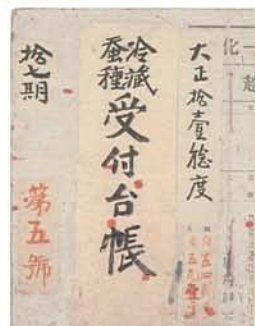 大正拾壹稔度
冷藏
蚕種
受付台帳
拾七期
第五號